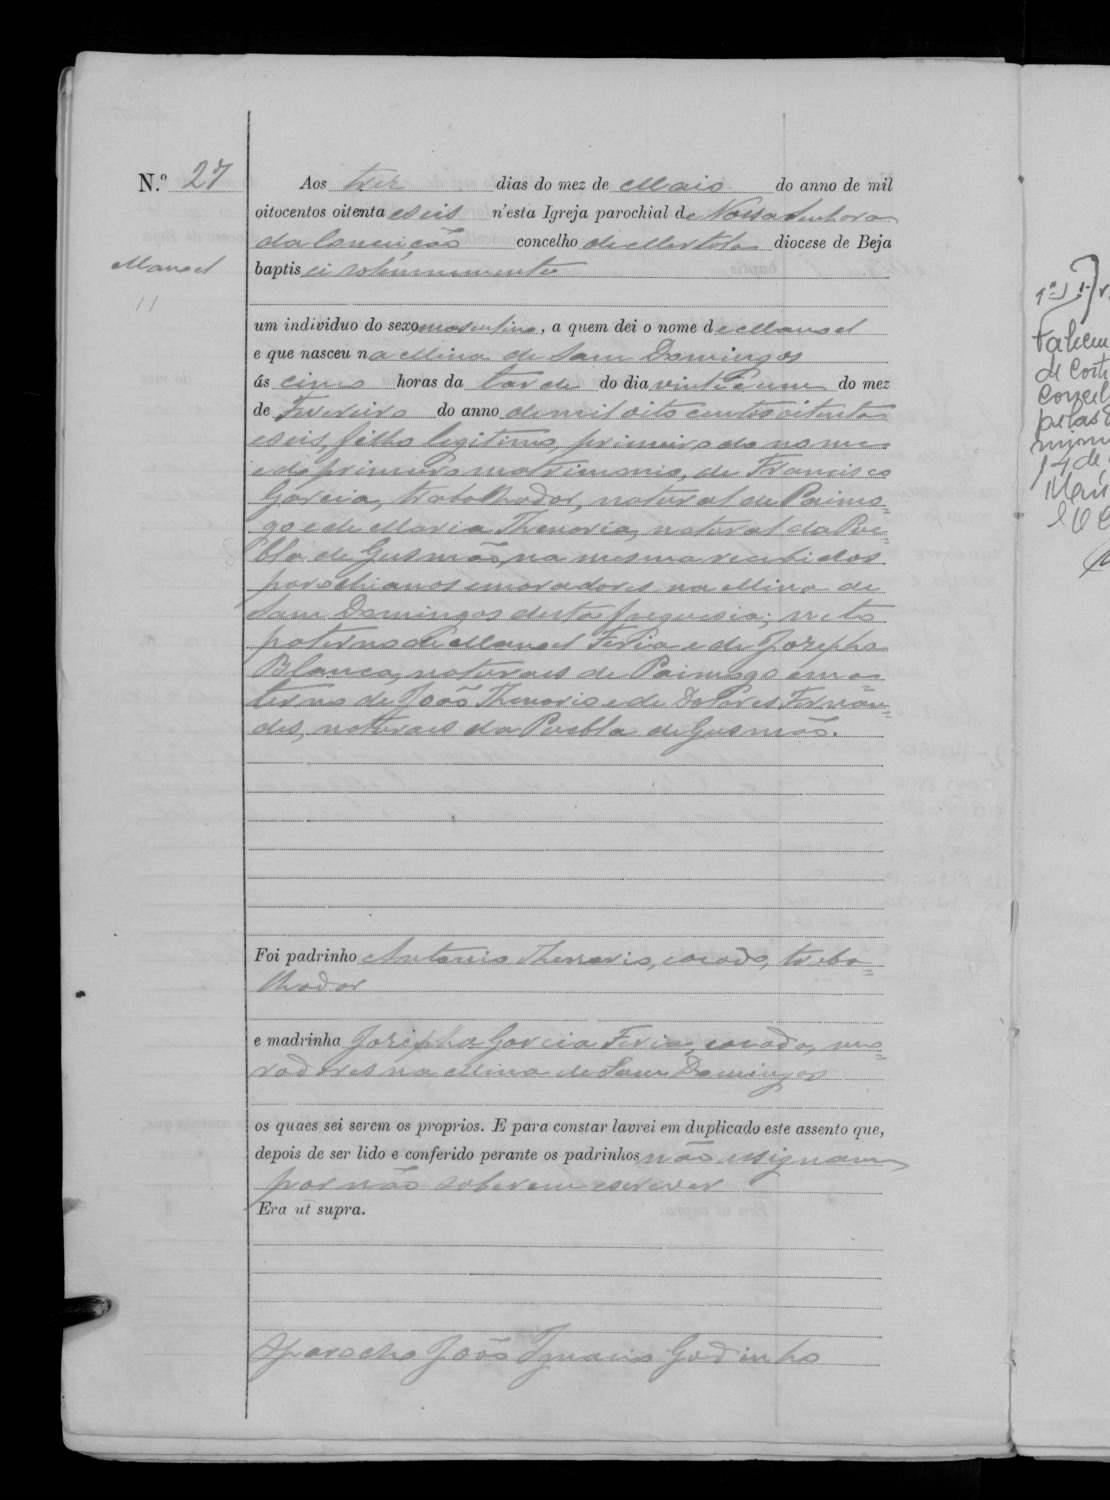 N.º 27
Aos trez dias do mez de Maio do anno de mil
oitocentos oitenta e seis n'esta Igreja parochial de Nossa Senhora
da Conceição concelho de Mertola diocese de Beja
Manoel
baptisei solemnemente
11
um individuo do sexo masculino, a quem dei o nome de Manoel
e que nasceu na Mina de Sam Domingos
ás cinco horas da tarde do dia vinte e um do mez
de Fevereiro do anno de mil oito centos oitenta
e seis, filho legitimo primeiro do nome
e do primeiro matrimonio, de Francisco
Garcia, trabalhador, natural de Paimo=
go e de Maria Thenoria, natural da Pue=
bla de Gusmão, na mesma recebidos
parochianos e moradores na Mina de
Sam Domingos desta freguesia; neto
paterno de Manoel Feria e de Josepha
Blanca, naturaes de Paimogo e ma=
terno de João Thenorio e de Dolores Fernan=
des, naturaes da Puebla de Gusmão.
Foi padrinho Antonio Thenorio, casado, traba=
lhador
e madrinha Josepha Garcia Feria, casada, mo=
radores na Mina de Sam Domingos
os quaes sei serem os proprios. E para constar lavrei em duplicado este assento que,
depois de ser lido e conferido perante os padrinhos não assignam
por não saberem escrever
Era ut supra.
O parocho João Ignacio Godinho
de